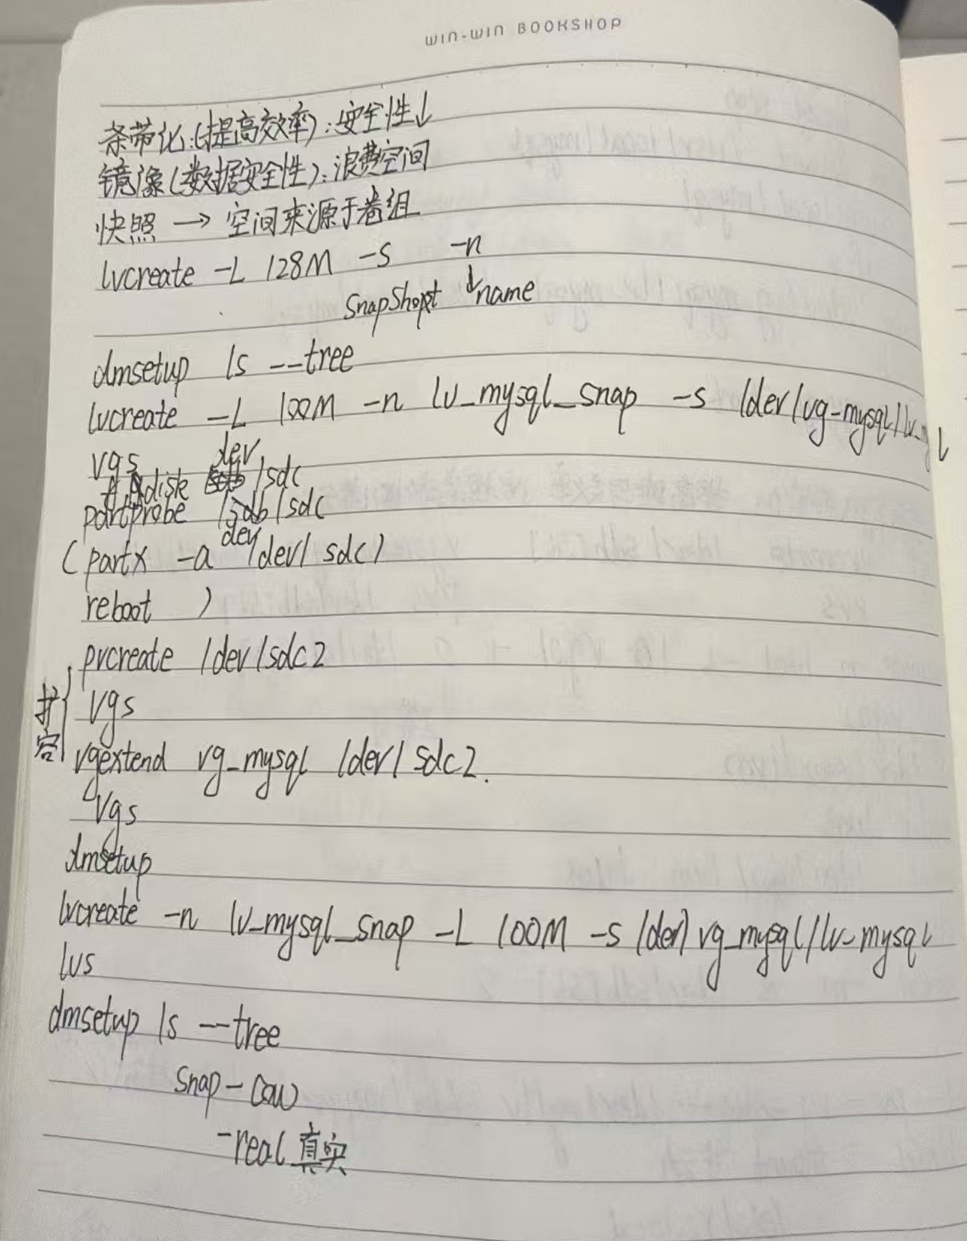 WIN-WIN BOOKSHOP
条带化:(提高效率):安全性↓
镜像(数据安全性):浪费空间
快照 → 空间来源于卷组
lvcreate -L 128M -s -n
snapshot ↓name
dmsetup ls --tree
lvcreate -L 100M -n lv_mysql_snap -s /dev/vg-mysql/lv_
vgs
fdisk /dev/sdc
partprobe /dev/sdc
(partx -a /dev/sdc)
reboot )
扩容
pvcreate /dev/sdc2
vgs
vgextend vg_mysql /dev/sdc2.
vgs
dmsetup
lvcreate -n lv_mysql_snap -L 100M -s /dev/vg_mysql/lv_mysql
lvs
dmsetup ls --tree
snap-cow
-real 真实